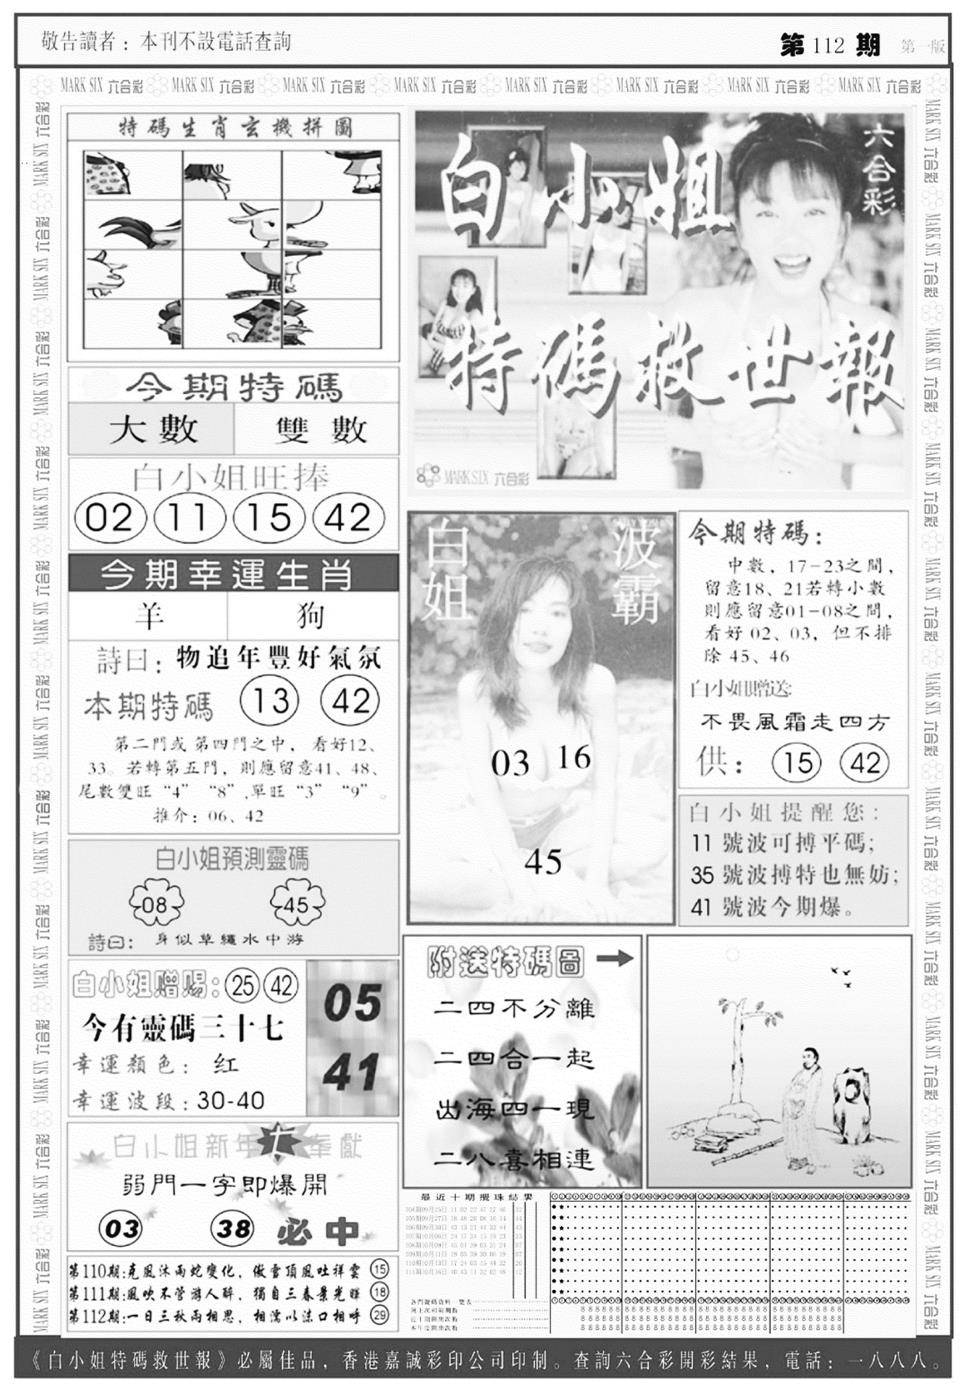 敬告讀者：本刊不設電話查詢
第 112 期 第一版
MARK SIX 六合彩 MARK SIX 六合彩 MARK SIX 六合彩 MARK SIX 六合彩 MARK SIX 六合彩 MARK SIX 六合彩 MARK SIX 六合彩 MARK SIX 六合彩
特碼生肖玄機拼圖
今期特碼
大數 雙數
白小姐旺捧
02 11 15 42
今期幸運生肖
羊 狗
詩曰：物追年豐好氣氛
本期特碼 13 42
第二門或第四門之中，看好12、
33。若轉第五門，則應留意41、48、
尾數雙旺“4” “8”,單旺“3” “9”。
推介：06、42
白小姐預測靈碼
08 45
詩曰：身似草繩水中游
白小姐贈賜：25 42
今有靈碼三十七
幸運顏色：红
幸運波段：30-40
05
41
白小姐新年七奉獻
弱門一字即爆開
03 38 必中
第110期:克風沐雨蛇變化，傲雪頂風吐祥雲 15
第111期:風吹不管游人醉，獨自三春景光輝 18
第112期:一日三秋兩相思，相濡以沫口相呼 29
六合彩
白小姐
特碼救世報
MARK SIX 六合彩
白姐 波霸
03 16
45
今期特碼：
中數，17-23之間，
留意18、21若轉小數
則應留意01-08之間，
看好 02、03，但不排
除 45、46
白小姐贈送:
不畏風霜走四方
供：15 42
白小姐提醒您：
11 號波可搏平碼；
35 號波搏特也無妨；
41 號波今期爆。
附送特碼圖
二四不分離
二四合一起
出海四一現
二八喜相連
最近十期攪珠結果
《白小姐特碼救世報》必屬佳品，香港嘉誠彩印公司印制。查詢六合彩開彩結果，電話：一八八八。